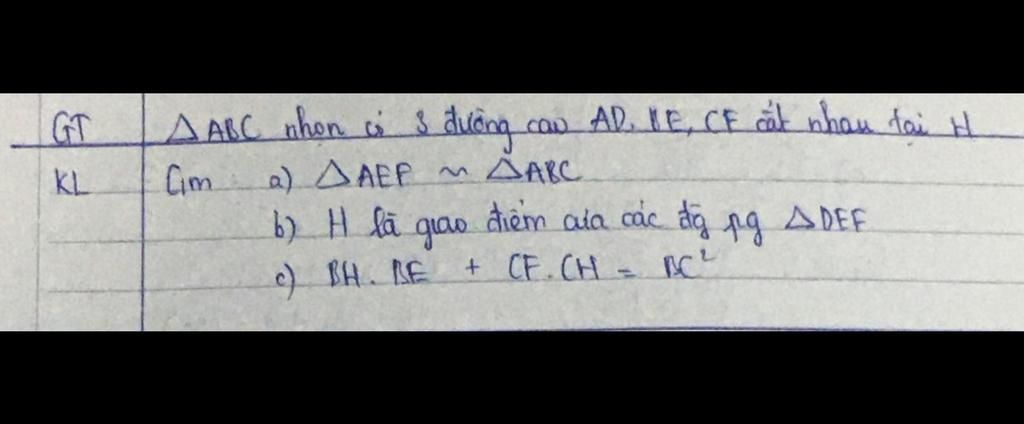 GT △ABC nhọn có 3 đường cao AD, BE, CF cắt nhau tại H
KL Cm a) △AEF ~ △ABC
b) H là giao điểm của các đg pg △DEF
c) BH. BE + CF. CH = BC²